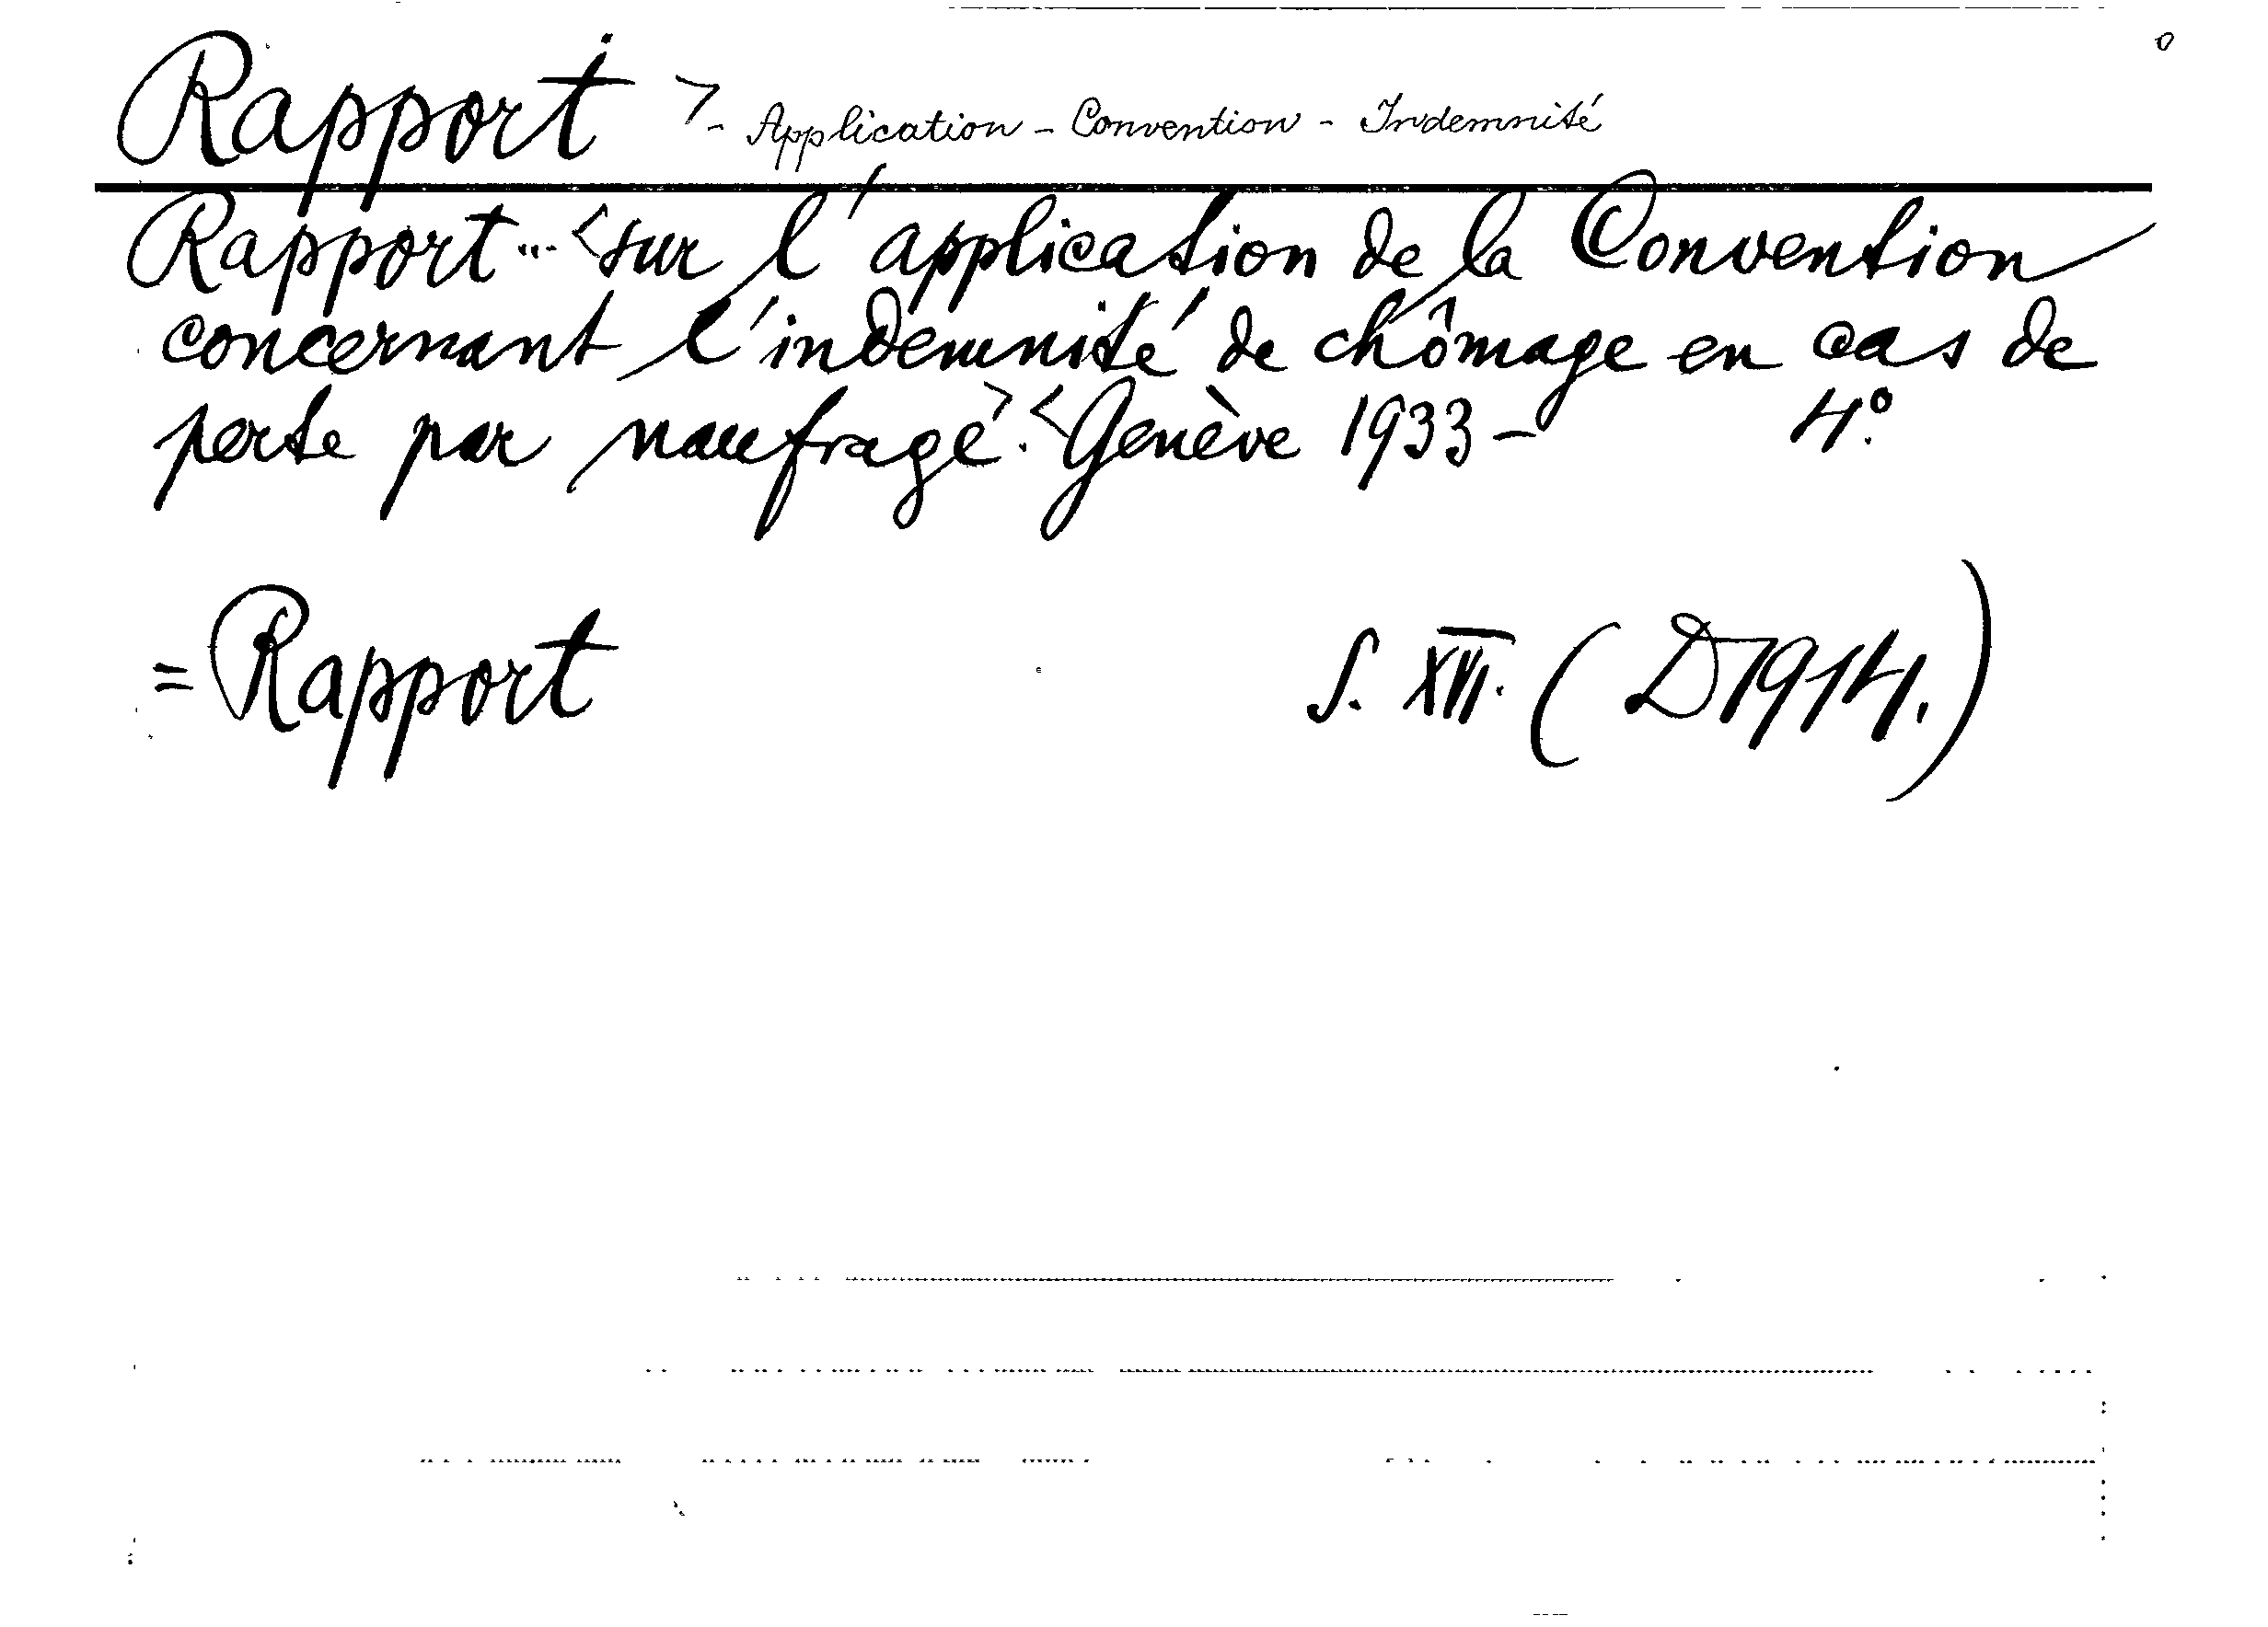 Rapport > - Application - Convention - Indemnité
Rapport... <sur l'application de la Convention
concernant l'indemnité de chômage en cas de
perte par naufrage>. <Genève 1933- 4°.
= Rapport S. XVI. (D1914.)